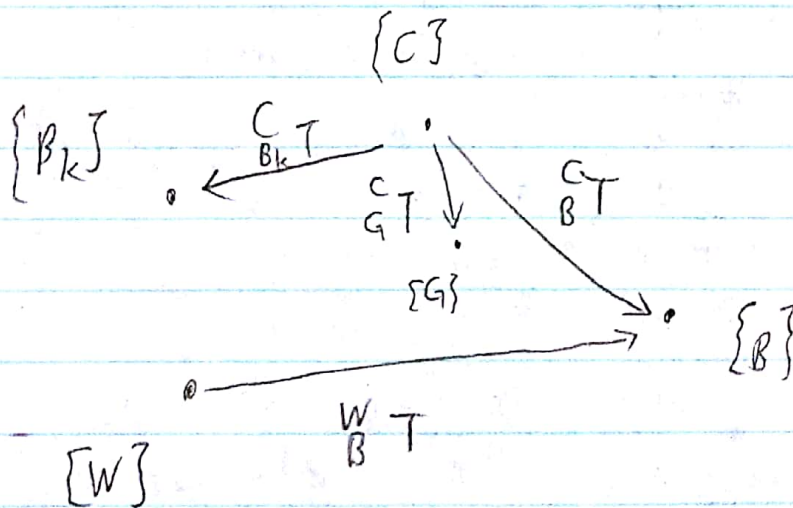 {C}
{Bk}
C
Bk T
C
G T
C
B T
{G}
{B}
W
B T
[W]